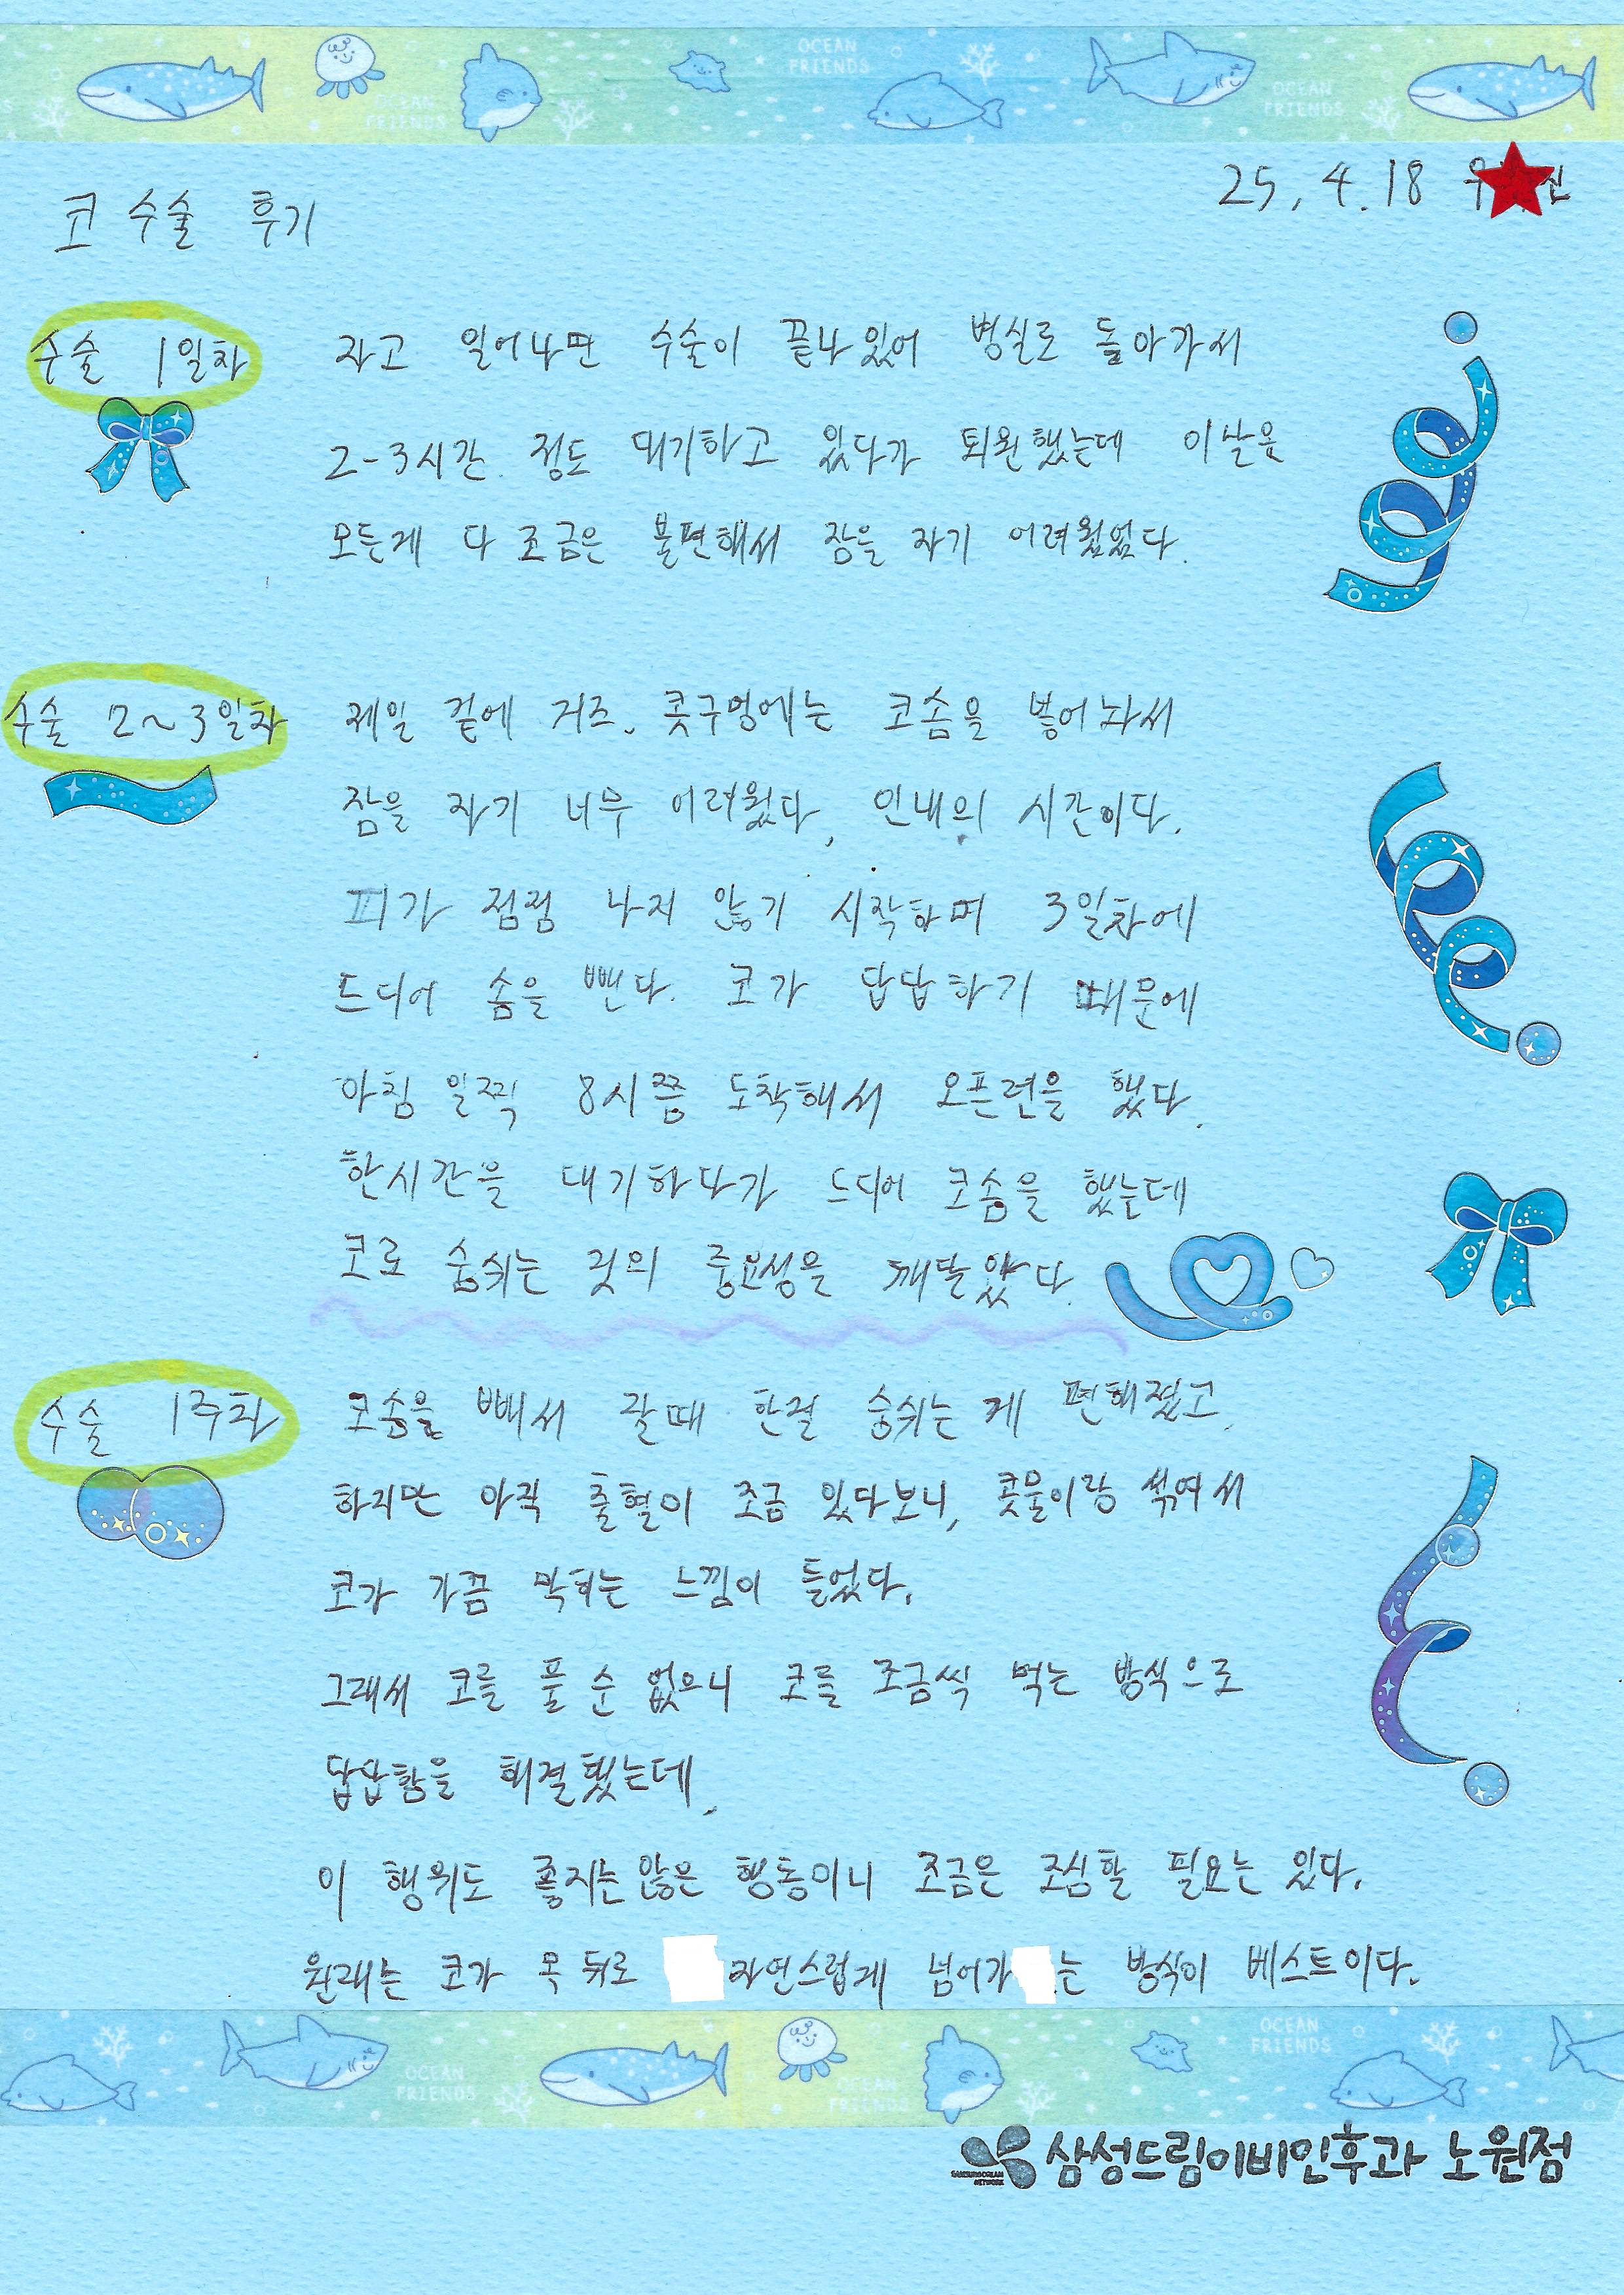 OCEAN FRIENDS
OCEAN FRIENDS
OCEAN FRIENDS
25, 4. 18 우
코 수술 후기
수술 1일차
자고 일어나면 수술이 끝나있어 병실로 돌아가서
2-3시간 정도 대기하고 있다가 퇴원했는데 이날은
모든게 다 조금은 불편해서 잠을 자기 어려웠었다.
수술 2~3일차
제일 겉에 거즈, 콧구멍에는 코솜을 넣어놔서
잠을 자기 너무 어려웠다, 인내의 시간이다.
피가 점점 나지 않기 시작하며 3일차에
드디어 솜을 뺀다. 코가 답답하기 때문에
아침 일찍 8시쯤 도착해서 오픈런을 했다.
한시간을 대기하다가 드디어 코솜을 했는데
코로 숨쉬는 것의 중요성을 깨달았다.
수술 1주차
코솜을 빼서 잘때 한결 숨쉬는 게 편해졌고
하지만 아직 출혈이 조금 있다보니, 콧물이랑 섞여서
코가 가끔 막히는 느낌이 들었다.
그래서 코를 풀 순 없으니 코를 조금씩 먹는 방식으로
답답함을 해결했는데,
이 행위도 좋지는 않은 행동이니 조금은 조심할 필요는 있다.
원래는 코가 목 뒤로 자연스럽게 넘어가는 방식이 베스트이다.
OCEAN FRIENDS
OCEAN FRIENDS
OCEAN FRIENDS
삼성드림이비인후과 노원점